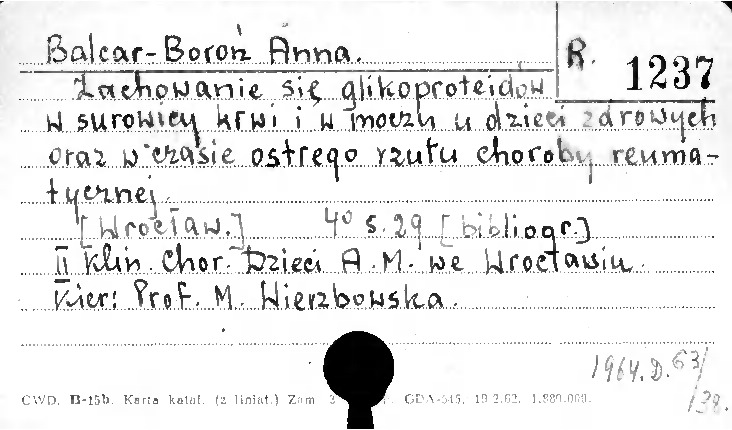 Balcar-Boroń Anna.
R. 1237
Zachowanie się glikoproteidów
w surowicy krwi i w moczu u dzieci zdrowych
oraz w czasie ostrego rzutu choroby reuma-
tycznej.
[Wrocław.] 4° s. 29 [bibliogr.]
II Klin. Chor. Dzieci A. M. we Wrocławiu.
Kier: Prof. M. Wierzbowska.
1964.D.63/
/38.
CWD, B-15b. Karta katal. (z liniat.) Zam GDA-545. 19.2.62. 1.880.000.